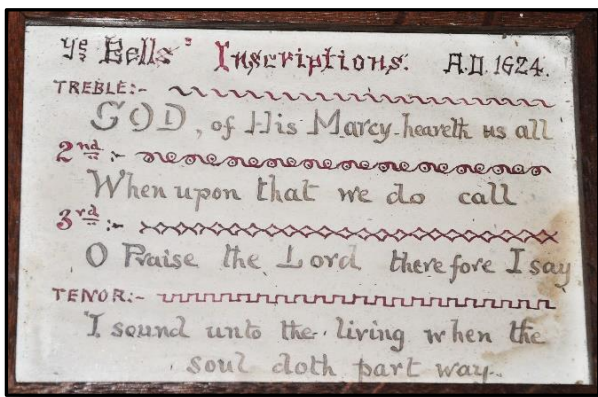 yᵉ Bells' Inscriptions. A.D. 1624.
TREBLE:-
GOD, of His Marcy heareth us all
2nd :-
When upon that we do call
3rd :-
O Praise the Lord therefore I say
TENOR:-
I sound unto the living when the
soul doth part way.